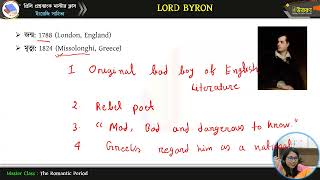 প্রিলি প্রশ্নব্যাংক মাস্টার ক্লাস
ইংরেজি সাহিত্য
LORD BYRON
উত্তরণ
➢ জন্ম: 1788 (London, England)
➢ মৃত্যু: 1824 (Missolonghi, Greece)
1 Original bad boy of English
Literature
2 Rebel poet
3. "Mad, Bad and dangerous to know."
4 Greeks regard him as a national
Master Class : The Romantic Period